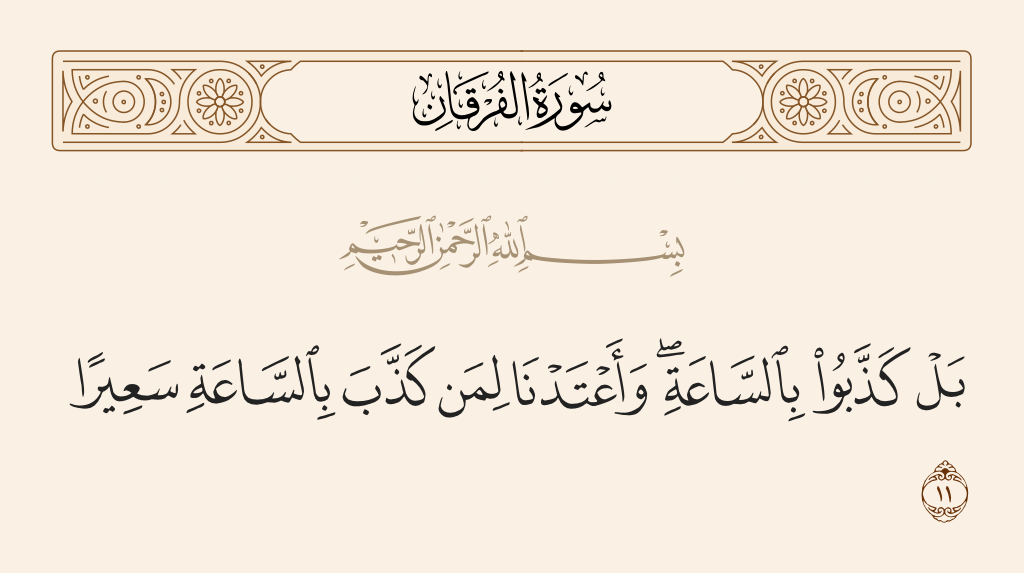 سُورَةُ الفُرْقَانِ
بِسْمِ ٱللَّهِ ٱلرَّحْمَٰنِ ٱلرَّحِيمِ
بَلْ كَذَّبُوا۟ بِٱلسَّاعَةِ ۖ وَأَعْتَدْنَا لِمَن كَذَّبَ بِٱلسَّاعَةِ سَعِيرًا
١١